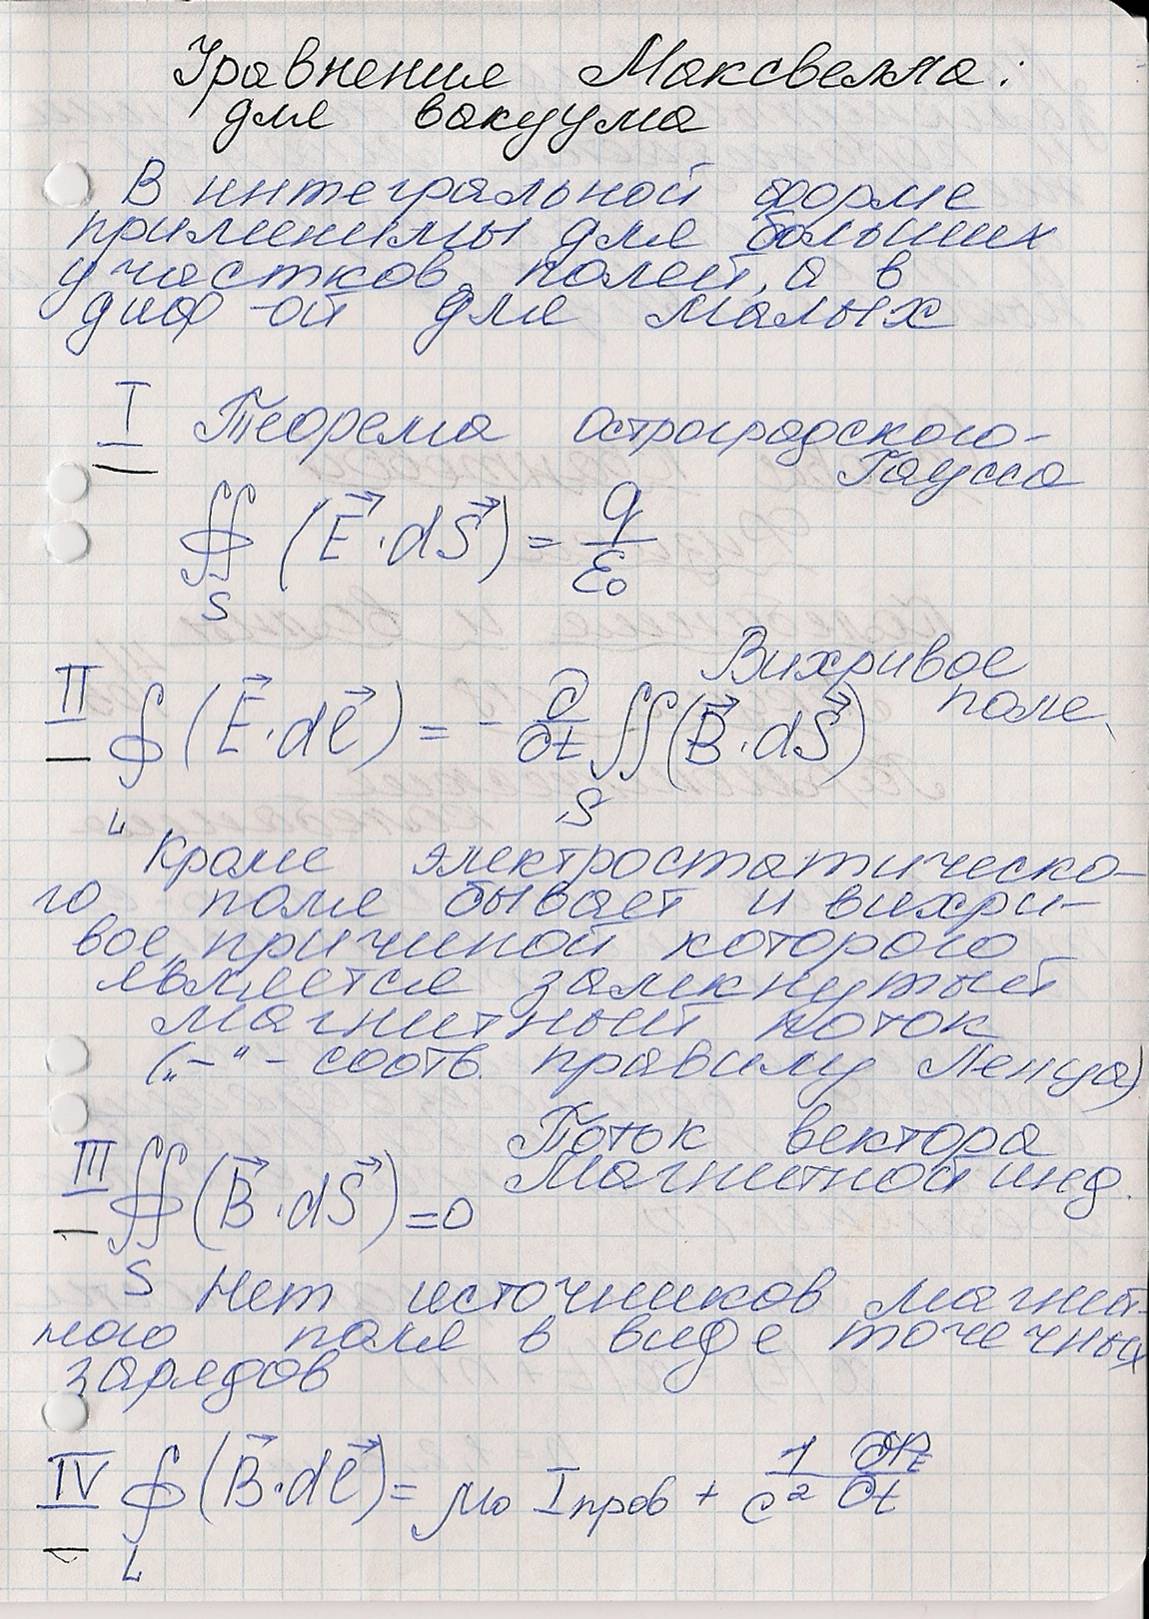 Уравнения Максвелла:
для вакуума
В интегральной форме
применимы для больших
участков полей, а в
диф-ой для малых
I Теорема Остроградского-
Гаусса
∯ (E⃗·dS⃗) = q/ε₀
S
Вихривое
поле
II ∮ (E⃗·dℓ⃗) = - ∂/∂t ∬ (B⃗·dS⃗)
L S
Кроме электростатическо-
го поля бывает и вихри-
вое, причиной которого
является замкнутый
магнитный поток
(„-“ - соотв. правилу Ленца)
Поток вектора
Магнитной инд.
III ∯ (B⃗·dS⃗) = 0
S
Нет источников магнит-
ного поля в виде точечных
зарядов
IV ∮ (B⃗·dℓ⃗) = μ₀ Iпров + 1/c² ∂/∂t
L